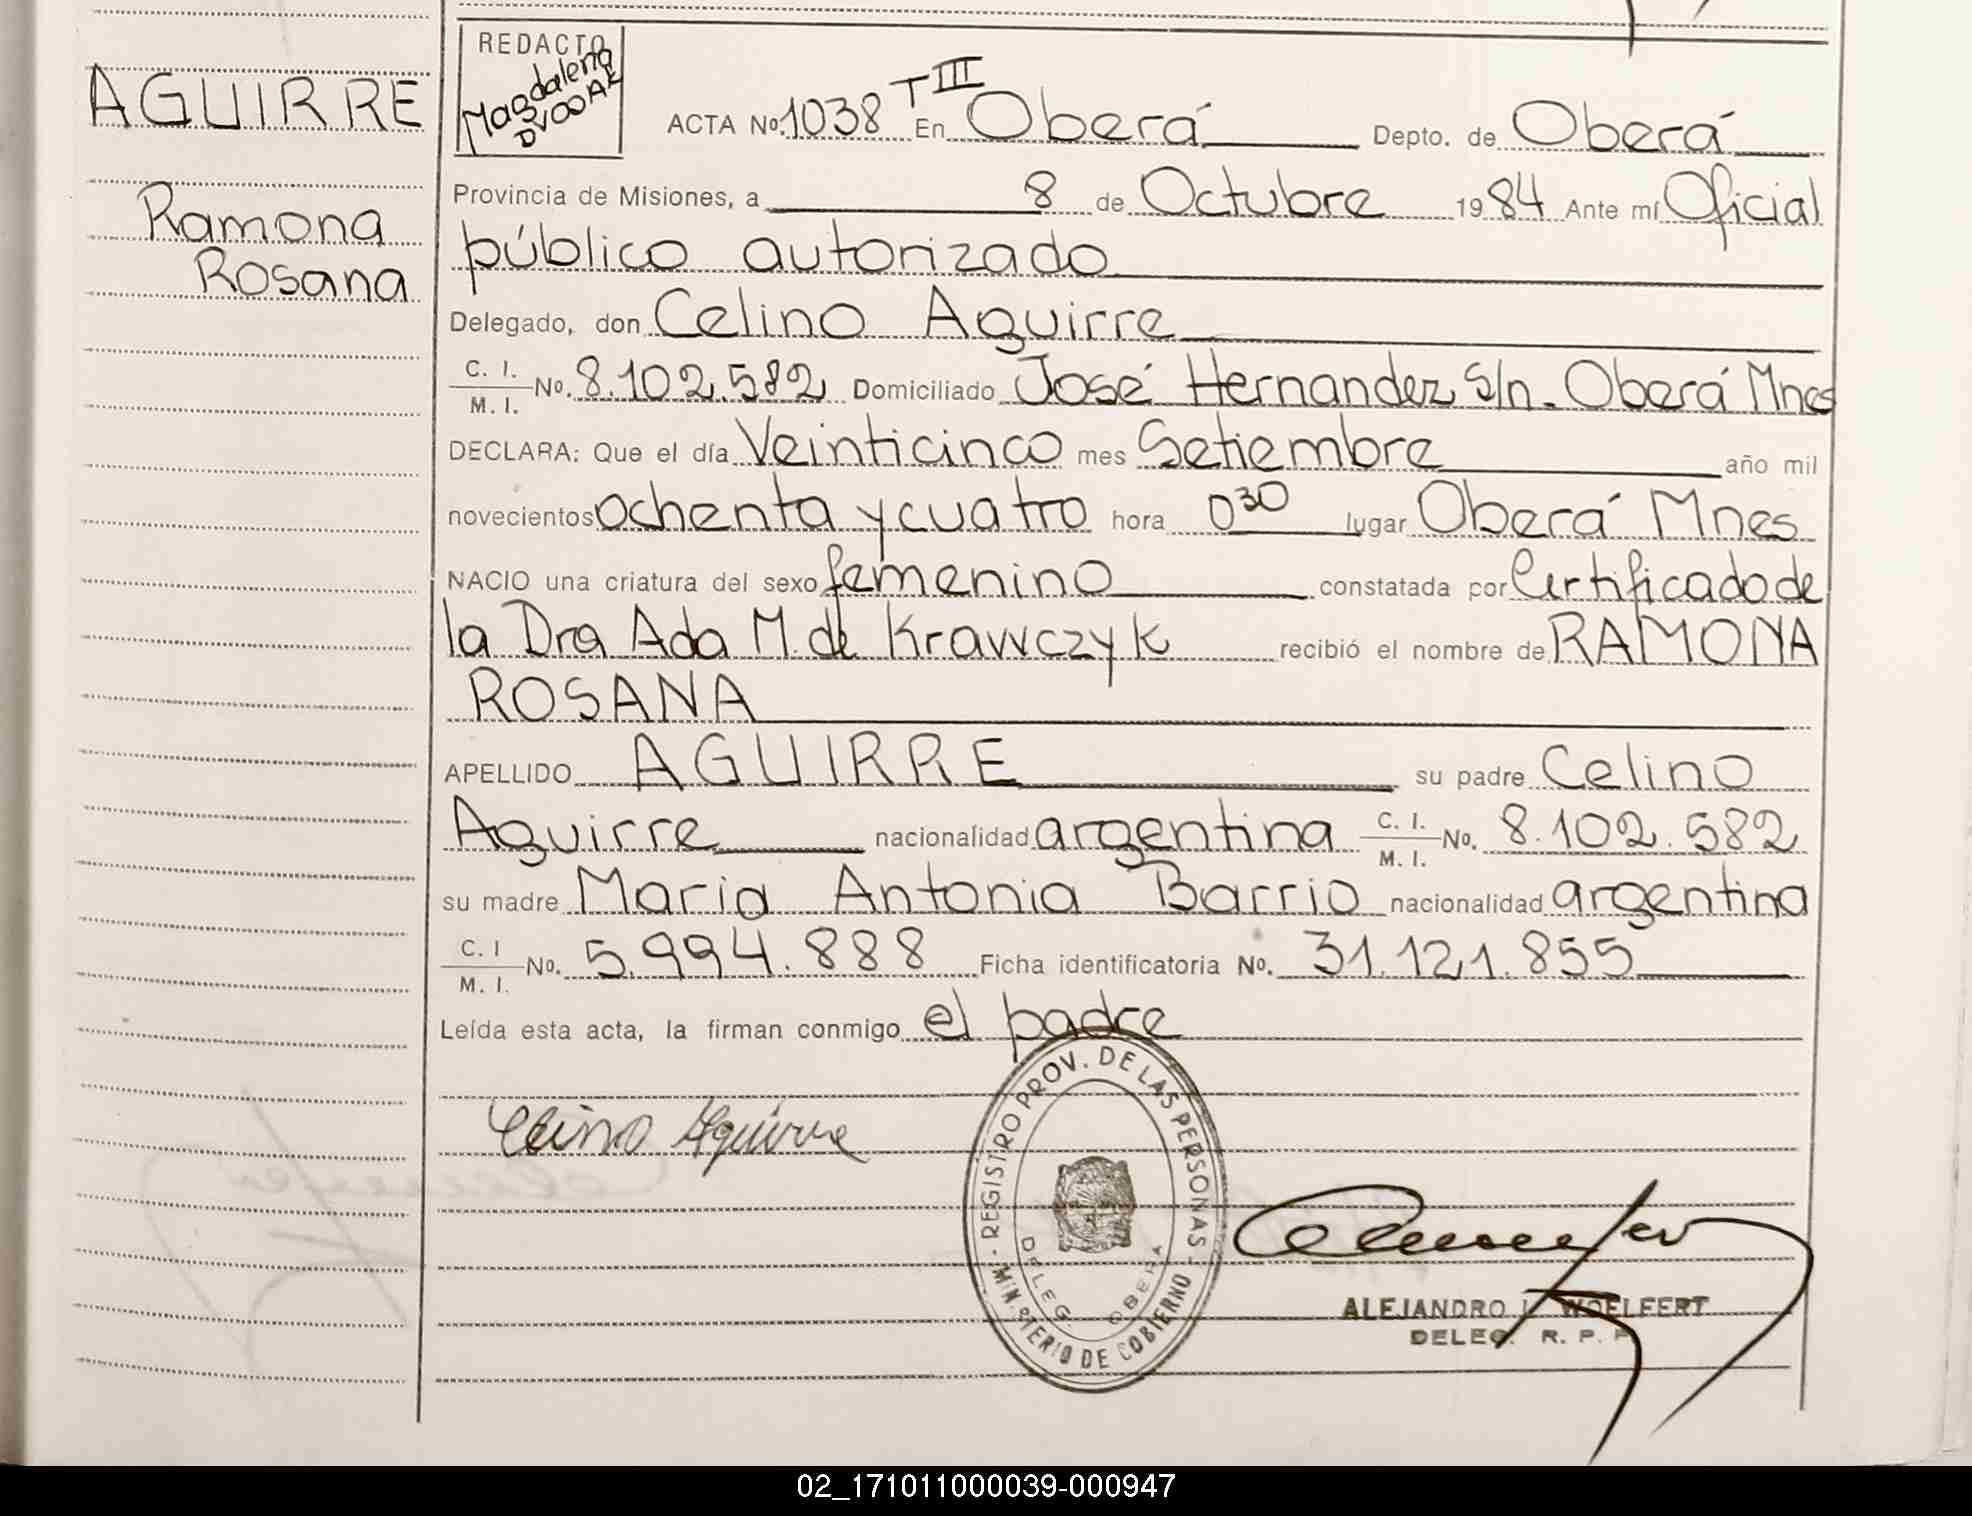 AGUIRRE
Ramona
Rosana
REDACTO
Magdalena
ACTA No. 1038 T III En Oberá Depto. de Oberá
Provincia de Misiones, a 8 de Octubre 1984 Ante mí Oficial
público autorizado
Delegado, don Celino Aguirre
C. I. / M. I. No. 8.102.582 Domiciliado José Hernandez S/n. Oberá Mnes
DECLARA: Que el día Veinticinco mes Setiembre año mil
novecientos ochenta y cuatro hora 0 30 lugar Oberá Mnes
NACIO una criatura del sexo femenino constatada por Certificado de
la Dra Ada M. de Krawczyk recibió el nombre de RAMONA
ROSANA
APELLIDO AGUIRRE su padre Celino
Aguirre nacionalidad argentina C. I. / M. I. No. 8.102.582
su madre Maria Antonia Barrio nacionalidad argentina
C. I / M. I. No. 5.994.888 Ficha identificatoria No. 31.121.855
Leída esta acta, la firman conmigo el padre
Celino Aguirre
REGISTRO PROV. DE LAS PERSONAS
MINISTERIO DE GOBIERNO
DELEG. OBERA
ALEJANDRO L. WOELFERT
DELEG. R. P. P
02_171011000039-000947